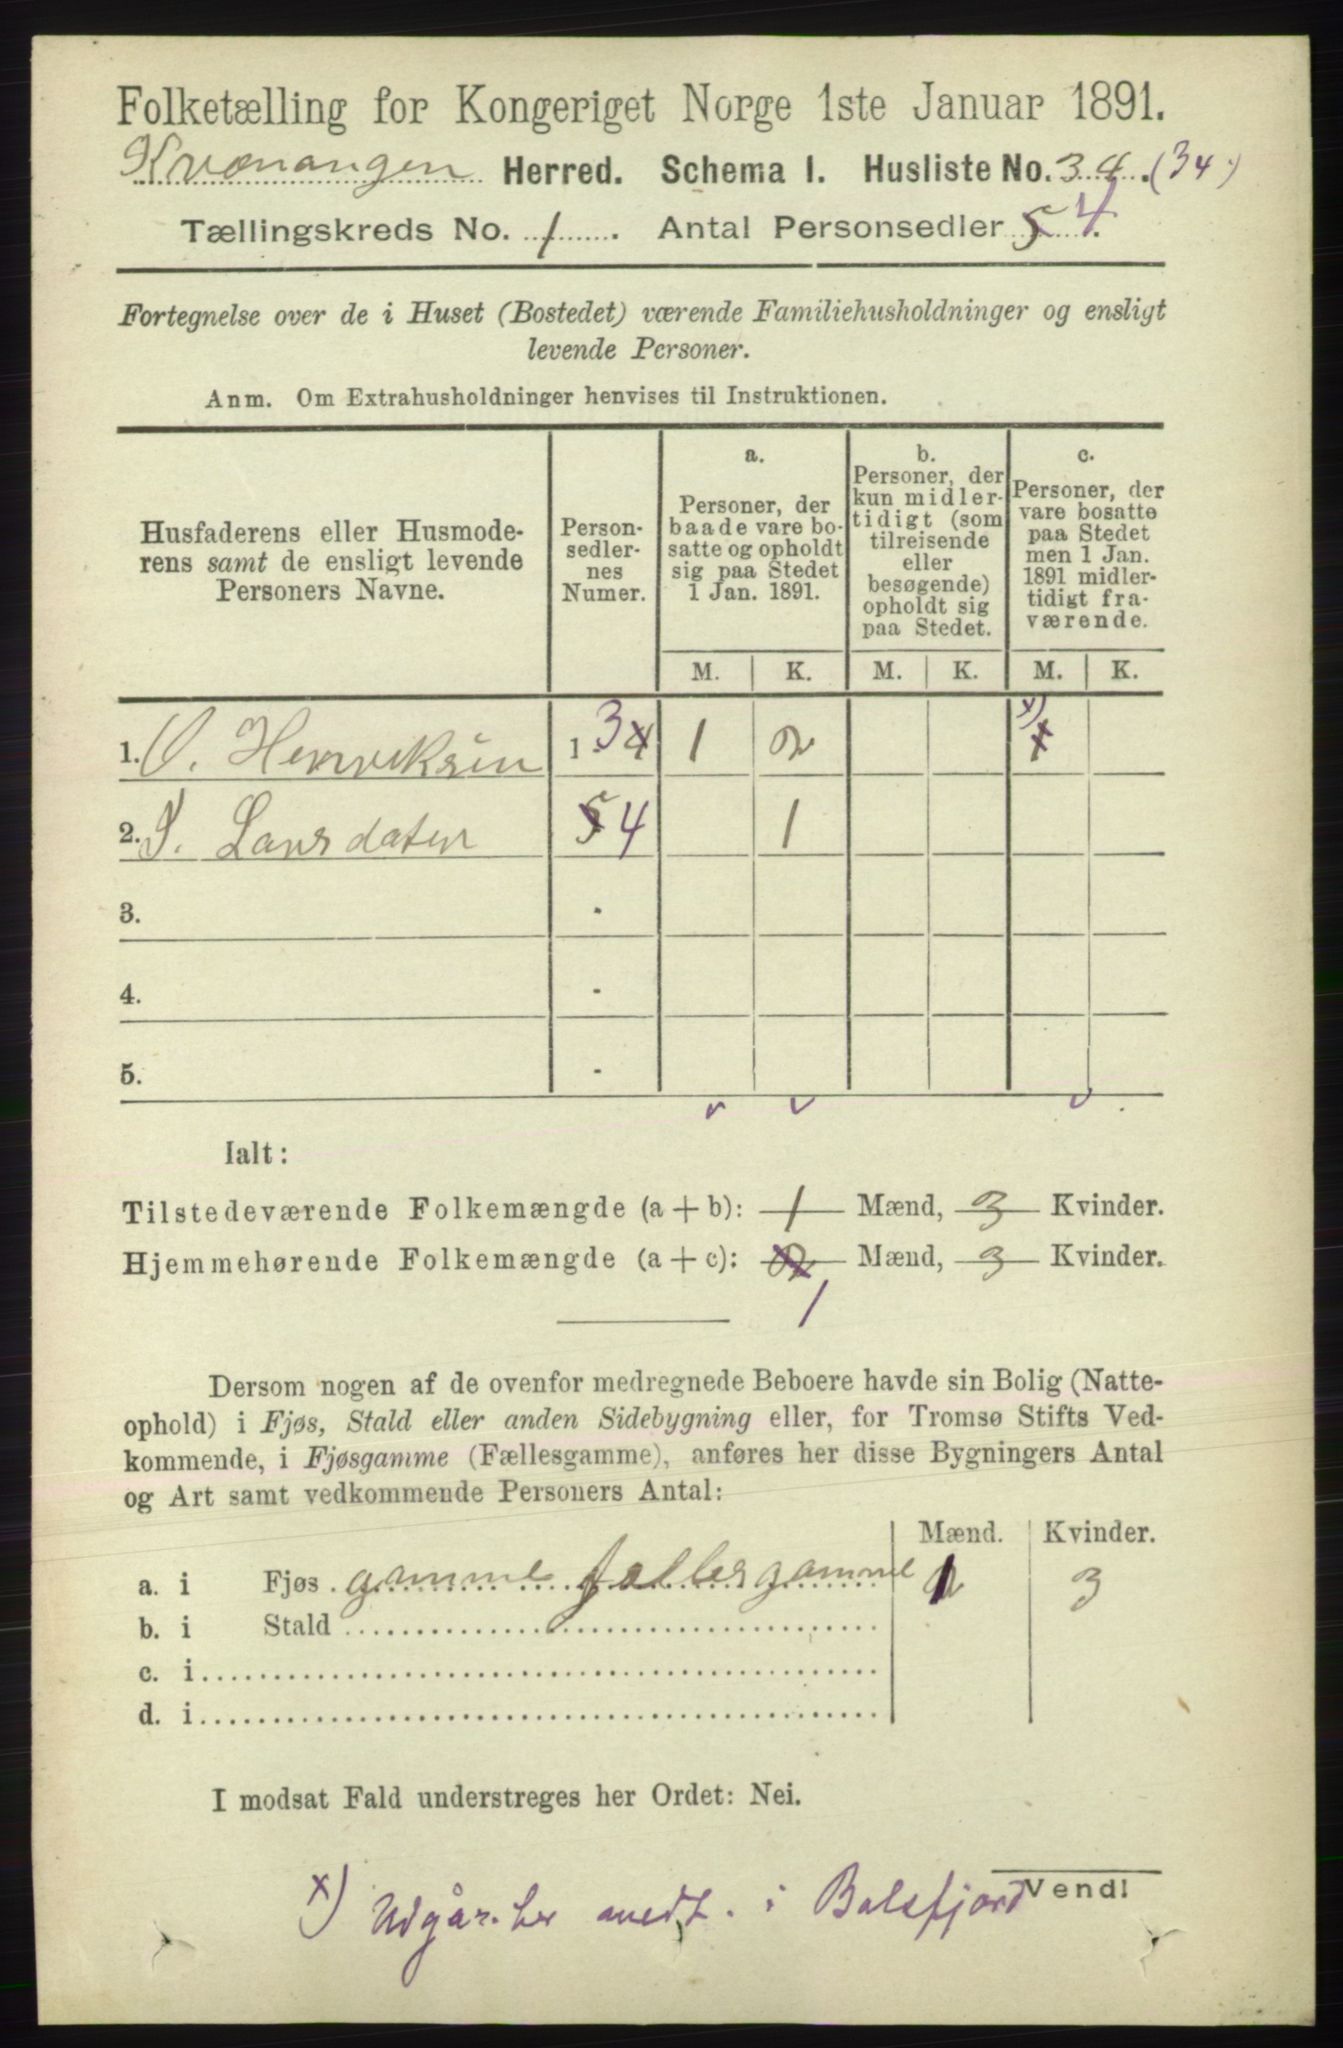 Folketælling for Kongeriget Norge 1ste Januar 1891.
Kvænangen Herred. Schema I. Husliste No. 34. (34.)
Tællingskreds No. 1. Antal Personsedler 5 4.
Fortegnelse over de i Huset (Bostedet) værende Familiehusholdninger og ensligt
levende Personer.
Anm. Om Extrahusholdninger henvises til Instruktionen.
Husfaderens eller Husmode-
rens samt de ensligt levende
Personers Navne.
Person-
sedler-
nes
Numer.
a.
Personer, der
baade vare bo-
satte og opholdt
sig paa Stedet
1 Jan. 1891.
b.
Personer, der
kun midler-
tidigt (som
tilreisende
eller
besøgende)
opholdt sig
paa Stedet.
c.
Personer, der
vare bosatte
paa Stedet
men 1 Jan.
1891 midler-
tidigt fra-
værende.
M. K. M. K. M. K.
1. O. Henriksen 1 - 3 4 1 2 x) 1
2. S. Larsdatter 5 4 1
3. -
4. -
5. -
Ialt:
Tilstedeværende Folkemængde (a + b): 1 Mænd, 3 Kvinder.
Hjemmehørende Folkemængde (a + c): 2 Mænd, 3 Kvinder.
1
Dersom nogen af de ovenfor medregnede Beboere havde sin Bolig (Natte-
ophold) i Fjøs, Stald eller anden Sidebygning eller, for Tromsø Stifts Ved-
kommende, i Fjøsgamme (Fællesgamme), anføres her disse Bygningers Antal
og Art samt vedkommende Personers Antal:
Mænd. Kvinder.
a. i Fjøs gamme fællesgamme 1 3
b. i Stald
c. i
d. i
I modsat Fald understreges her Ordet: Nei.
Vend!
x) Udgår her medt. i Balsfjord